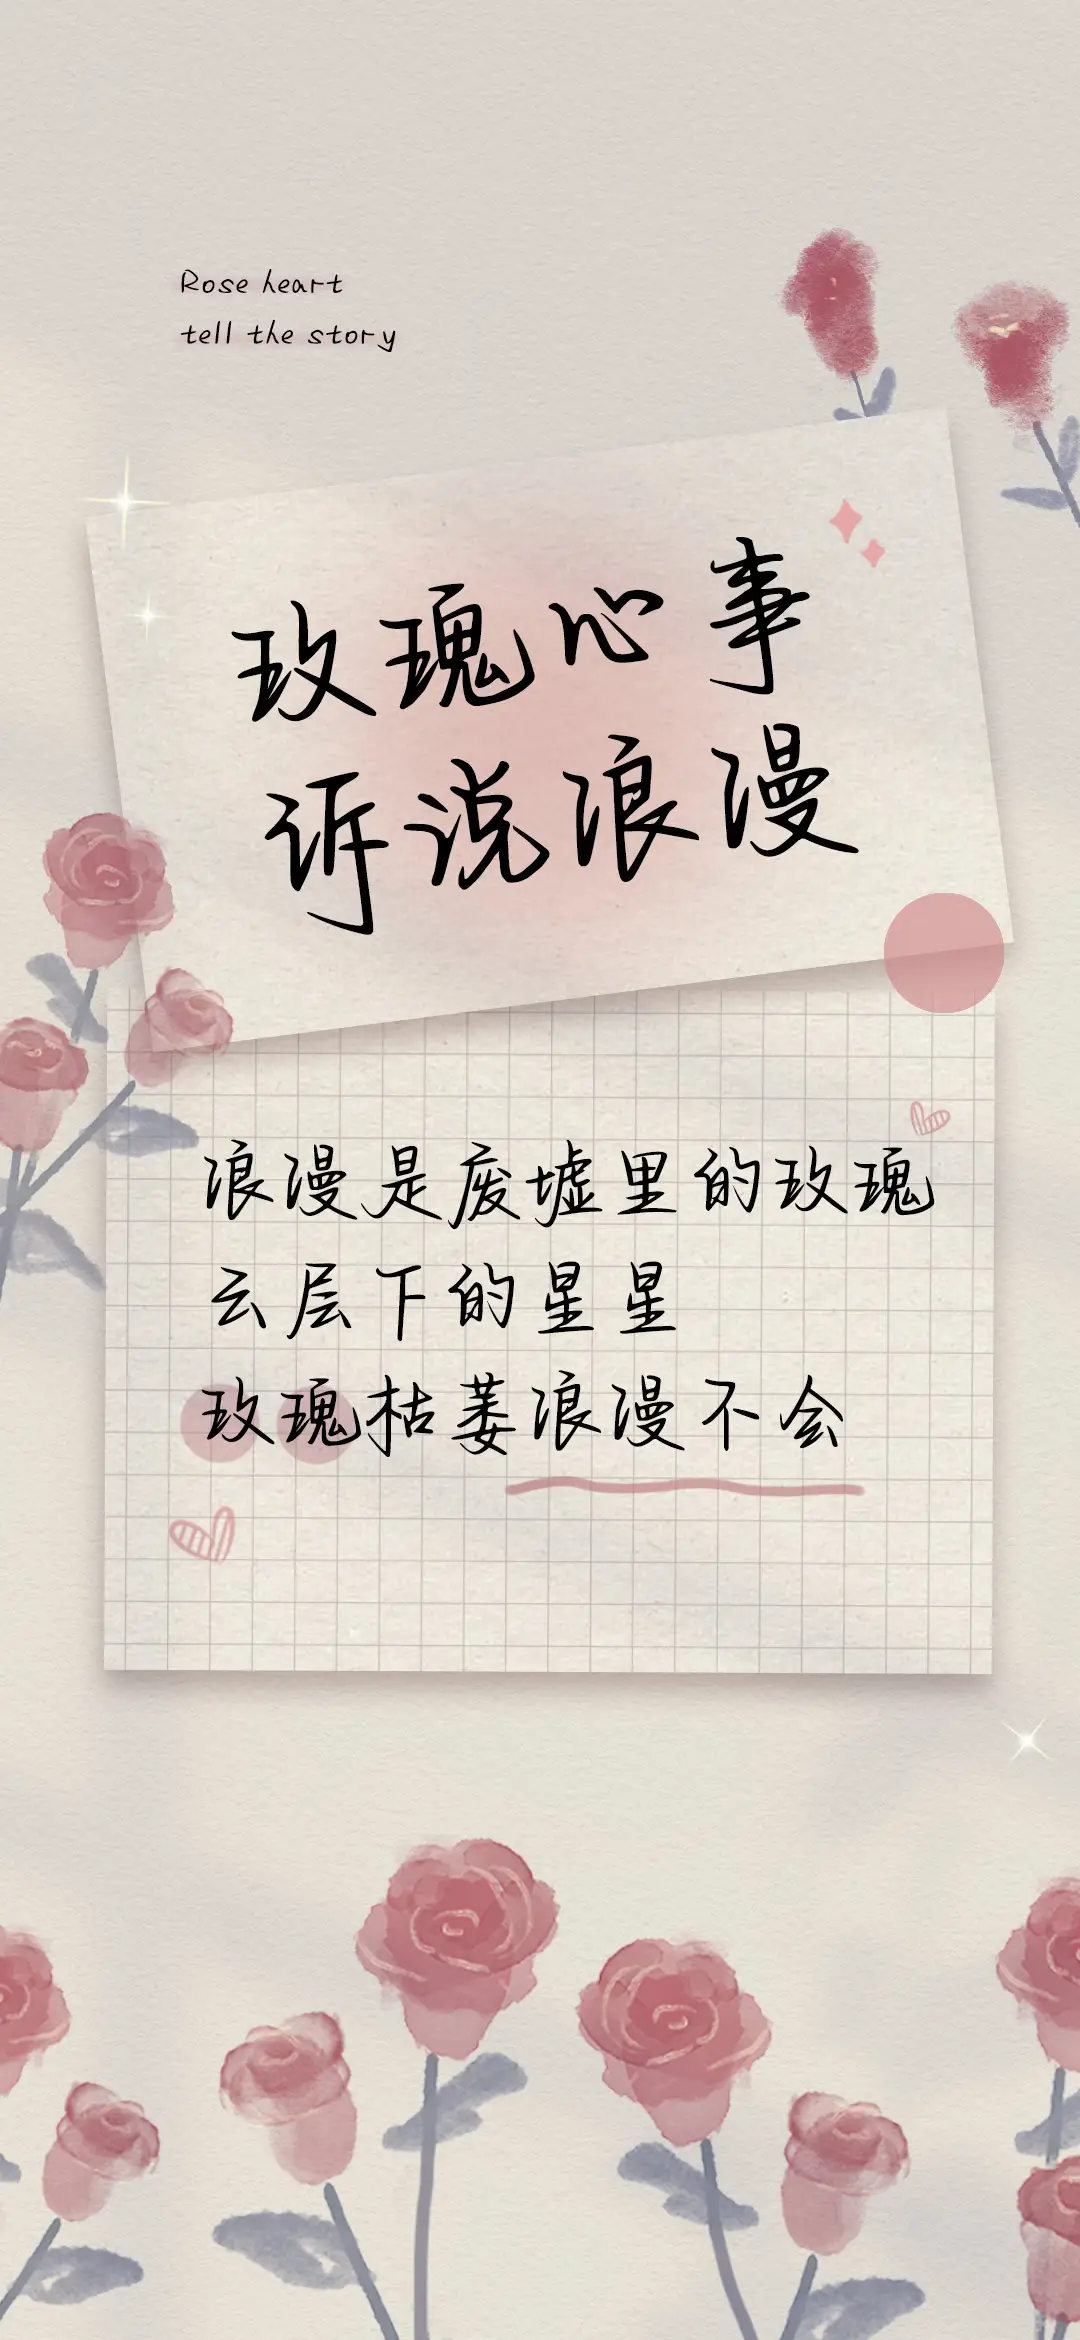 Rose heart
tell the story
玫瑰心事
诉说浪漫
浪漫是废墟里的玫瑰
云层下的星星
玫瑰枯萎浪漫不会